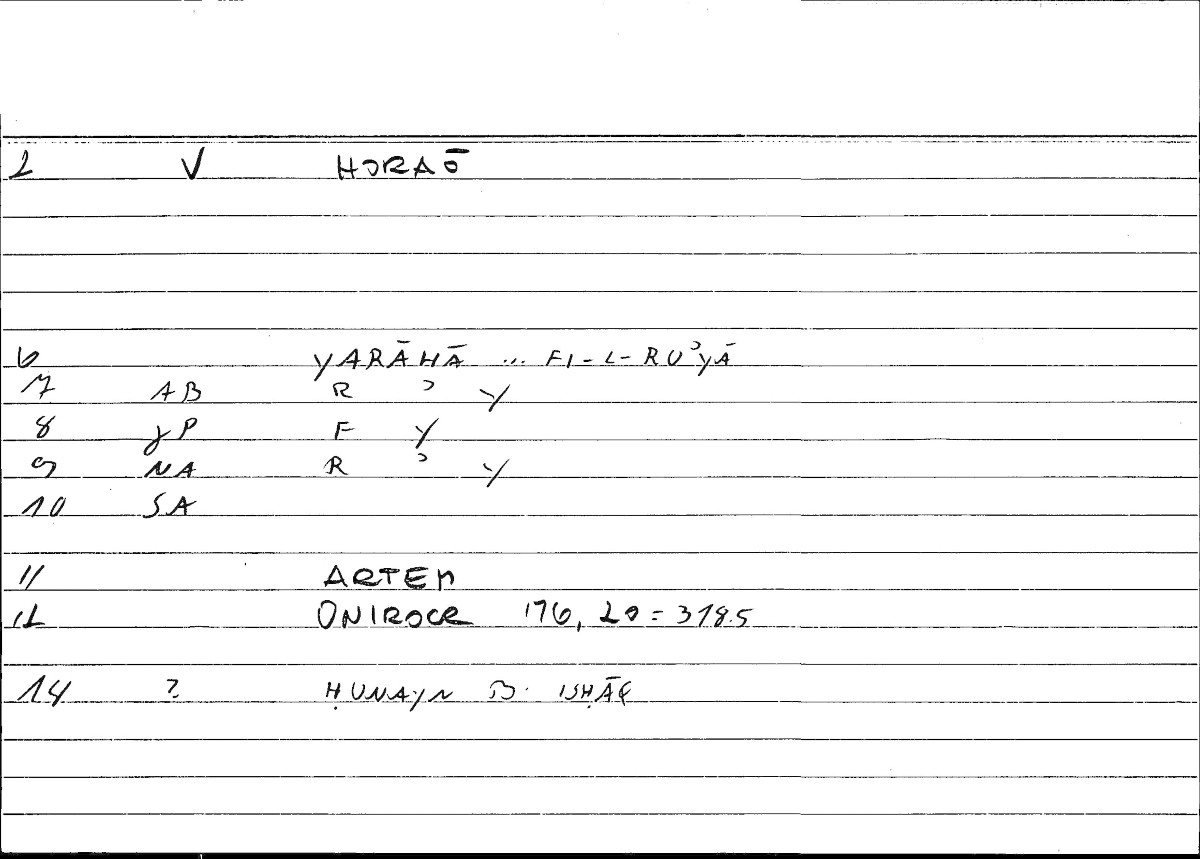 2 V HORAŌ
6 YARĀHĀ ... FI-L-RU'YĀ
7 AB R ' Y
8 JP F Y
9 NA R ' Y
10 SA
11 ARTEM
12 ONIROCR 176, 20 = 318.5
14 ? ḤUNAYN B. ISḤĀQ